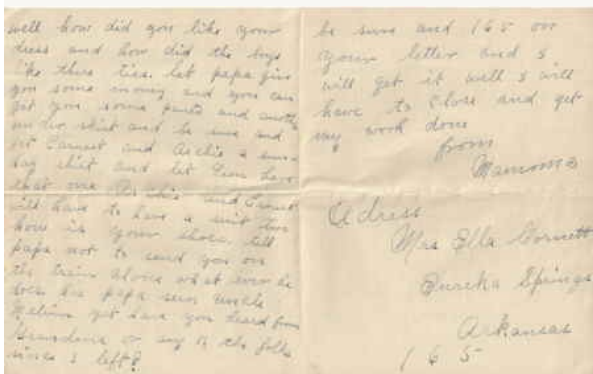 well how did you like your
dress and how did the boys
like there ties. let papa give
you some money and you can
get you some pants and
under skirt and be sure and
get Earnest and Archie a
day shirt and let Leon have
that one Archie and Earnest
will have to have a suit
how is your shoes. tell
papa not to send you on
the train alone what ever he
does has papa seen uncle
yet have you heard from
or any of the folks
since I left?
be sure and 165 on
your letter and I
will get it well I will
have to close and get
my work done
from
Mamoma
Adress
Mrs Ella Gornett
Eureka Springs
Arkansas
165